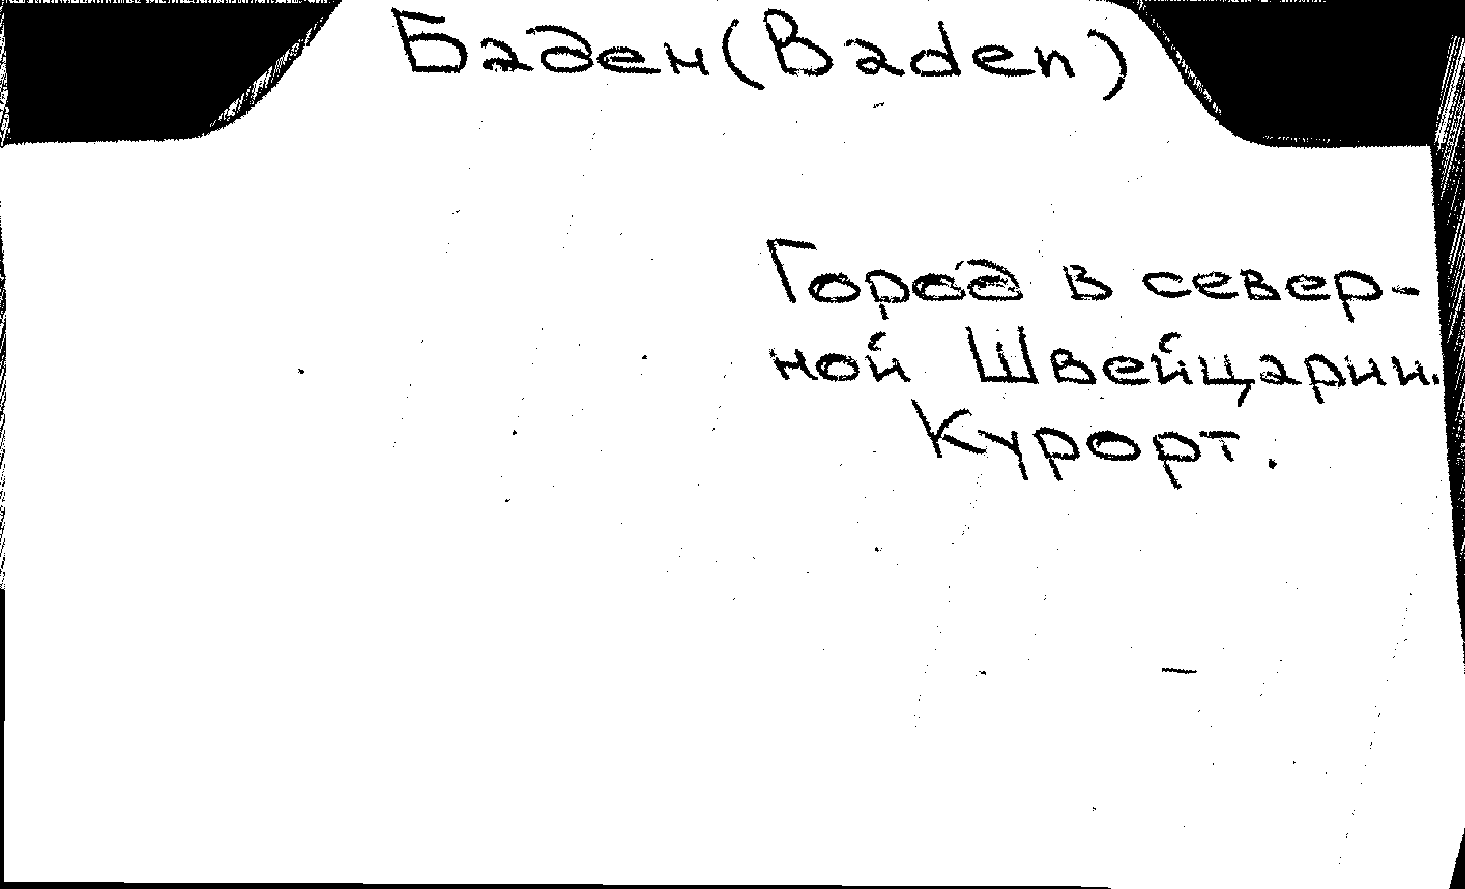 Баден (Baden)
Город в север-
ной Швейцарии.
Курорт.